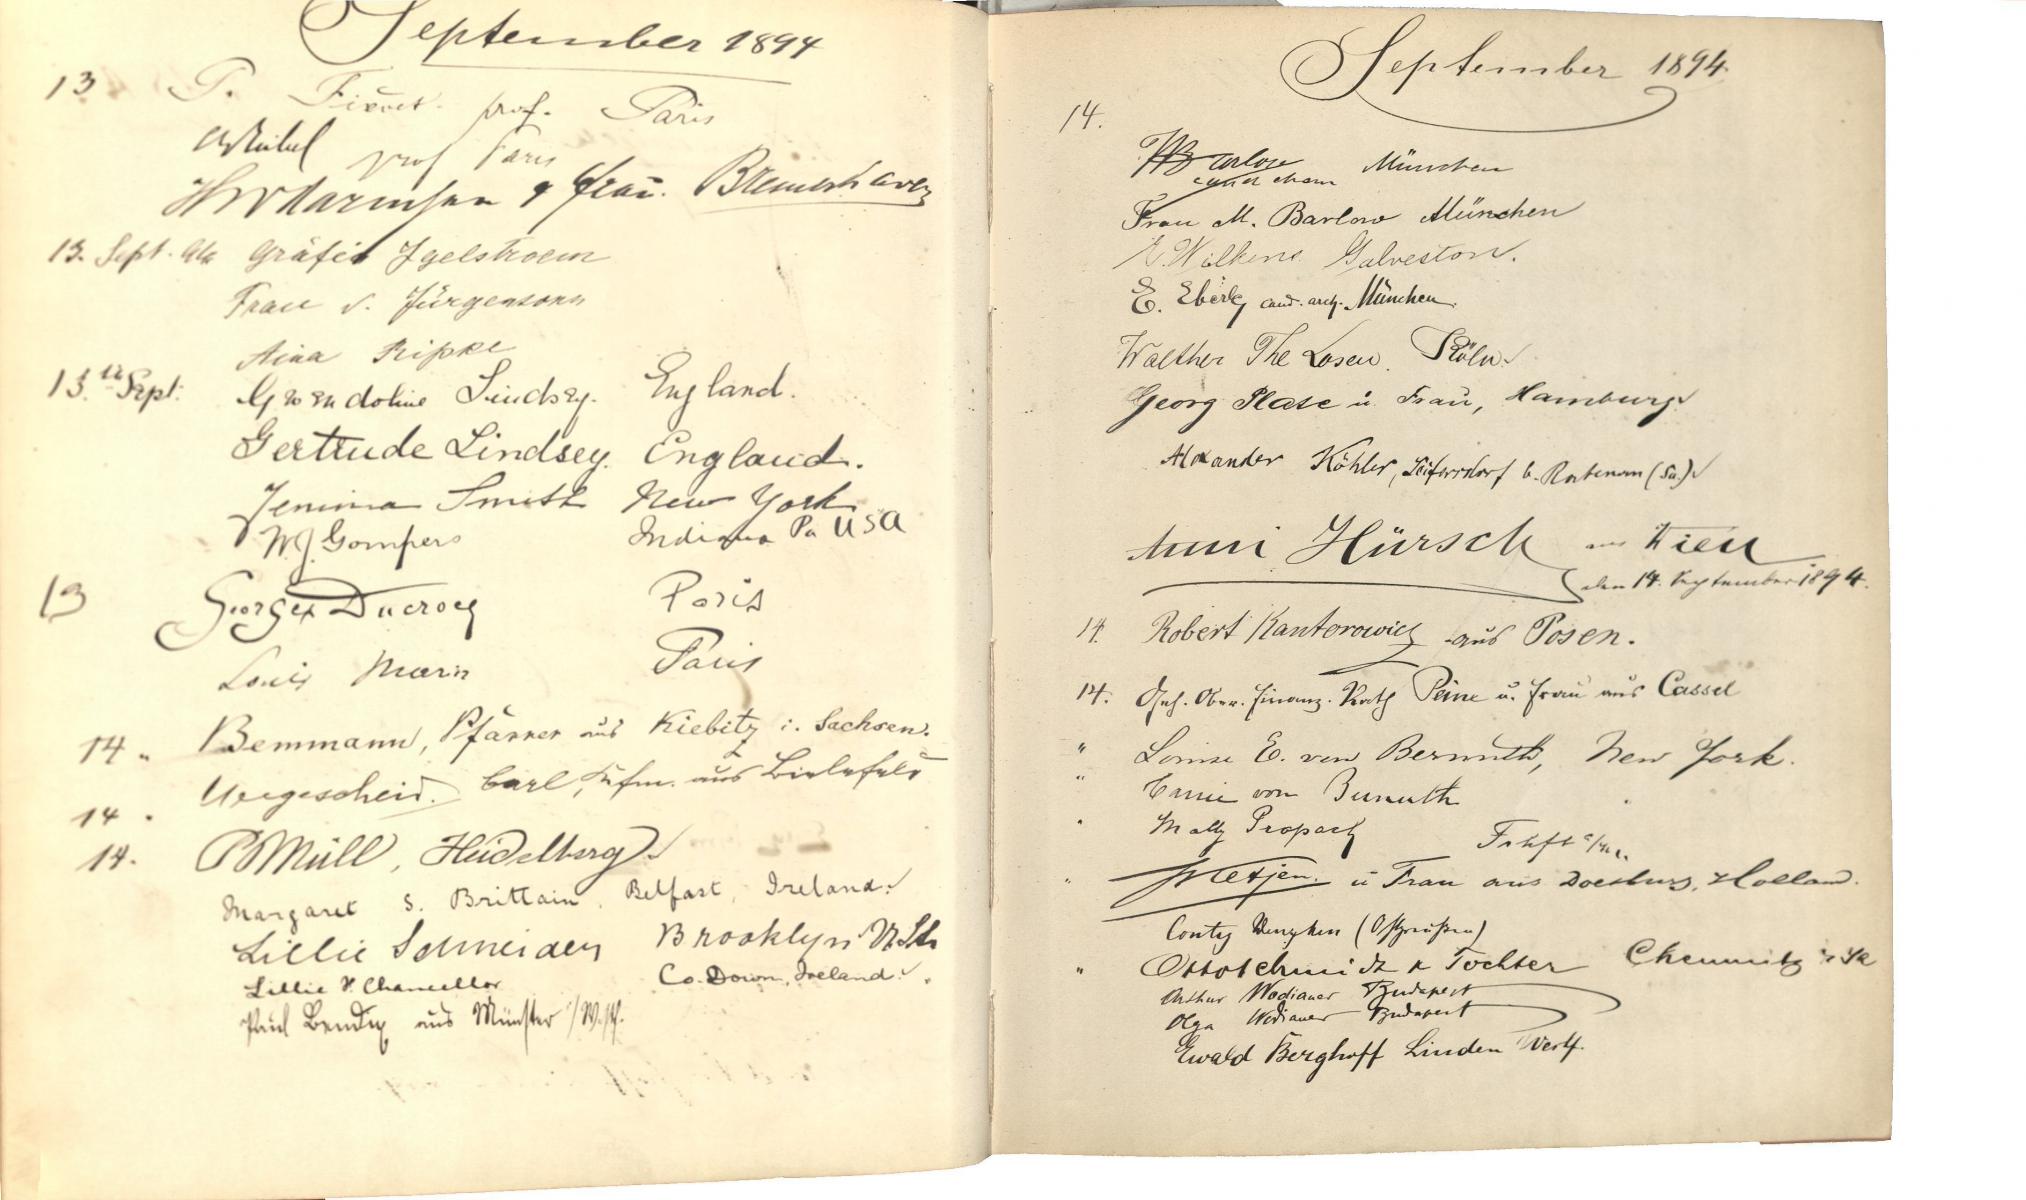 September 1894
13 P. prof. Paris
prof Paris
& Frau. Bremerhaven
13. Sept. Gräfin Igelstroem
Frau v. Jürgensonn
Aina Pripke
13. Sept: Gwendoline Lindsey. England.
Gertrude Lindsey. England.
Jemima Smith New York
W.J. Gompers Indiana Pa USA
13 Georges Ducrocq Paris
Louis Marin Paris
14 " Bemmann, Pfarrer aus Kiebitz i. Sachsen.
14 . Carl, Kfm. aus Bielefeld
14. Müll, Heidelberg.
Margaret S. Brittain, Belfast, Ireland.
Lillie Schneider Brooklyn
Lillie V. Chancellor Co. Down, Ireland.
Paul Bendix aus Münster i/W.
September 1894.
14.
München
Frau M. Barlow München
E. Wilkens Galveston.
E. Eberg cand. arch. München.
Walther The Losen. Köln
Georg Plate u. Frau, Hamburg
Alexander Köhler, b. (Sa.)
Anni Hürsch aus Wien
den 14. September 1894.
14. Robert Kantorowicz aus Posen.
14. Geh. Ober. Finanz. Rath Peine u. Frau aus Cassel
" Louise E. von Bernuth, New York.
" von Bernuth
" Molly Propach Frkft a/M.
" u Frau aus Doesburg, Holland.
(Ostpreußen)
" Otto Schmidt & Tochter Chemnitz i/Sa
Arthur Wodianer Budapest
Olga Wodianer Budapest
Ewald Berghoff Linden Westf.